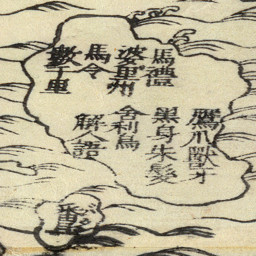 鷹爪獸牙
馬禮
黑身朱髮
婆里州
舍利鳥
馬令
解人語
數千里